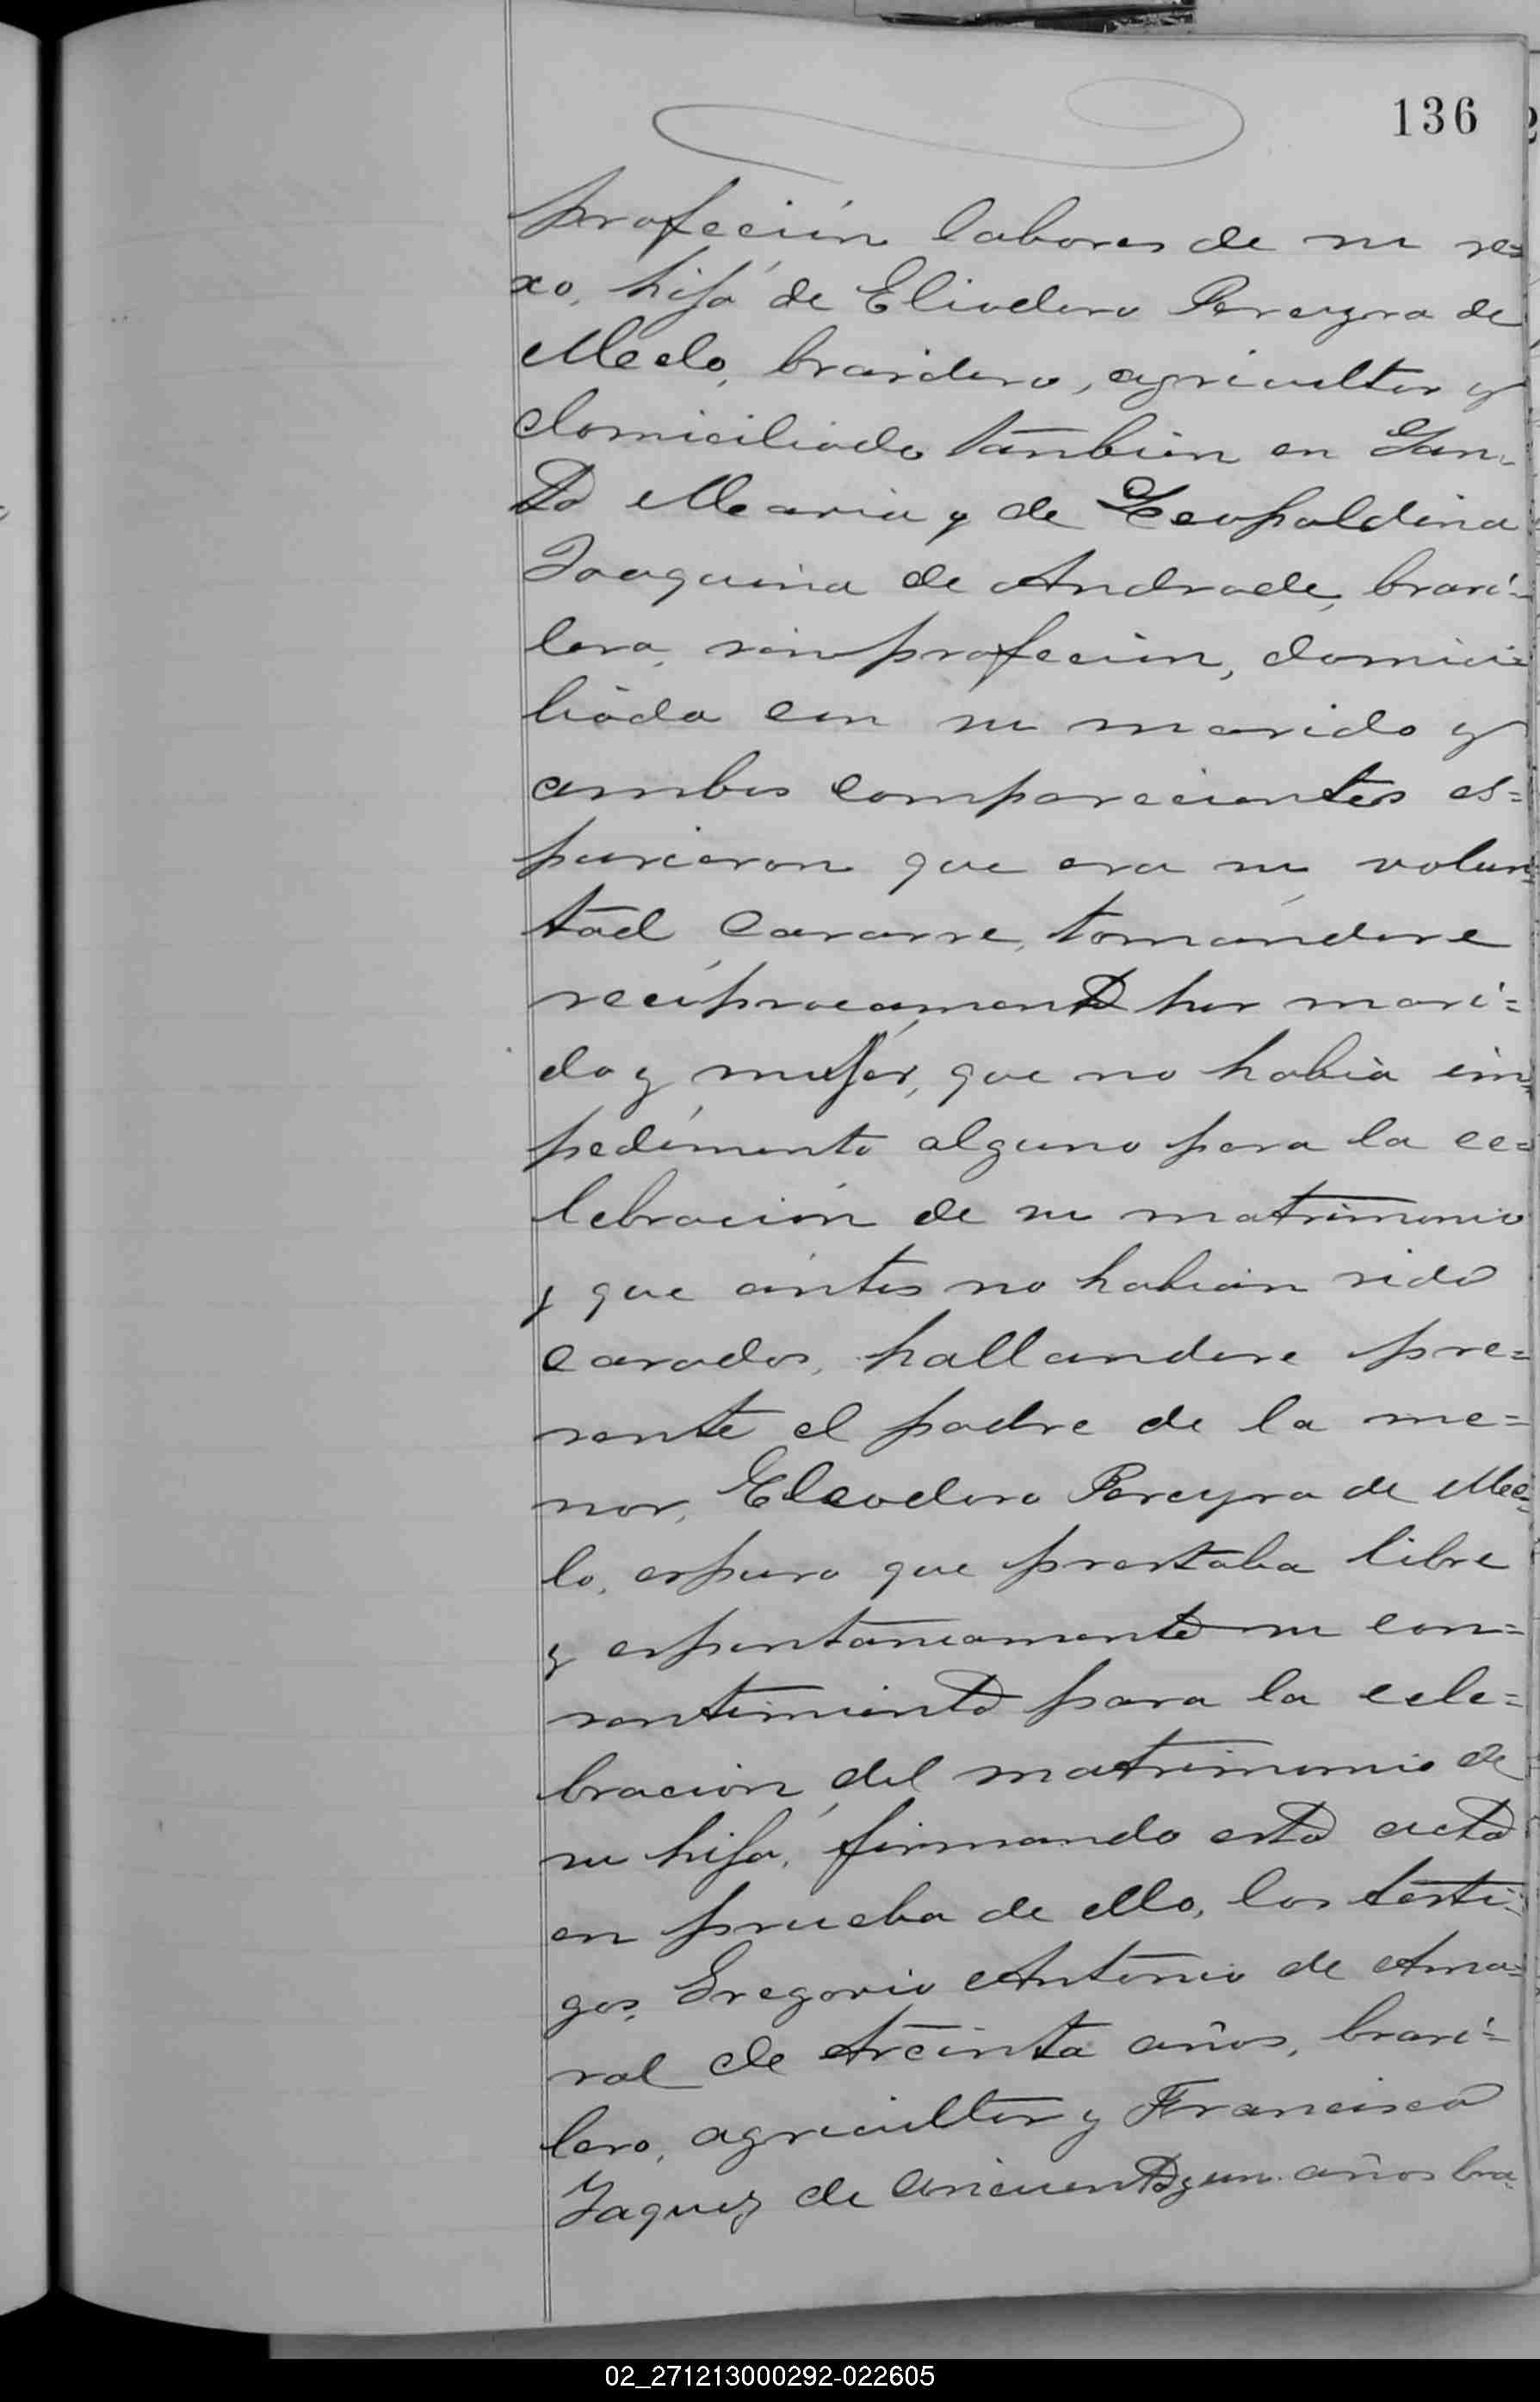 136
profeción labores de su se=
xo, hija de Eliodoro Pereyra de
Melo, brasilero, agricultor y
domiciliado tambien en San-
ta Maria y de Leopoldina
Joaquina de Andrade, brasi=
lera, sin profeción, domici=
liada con su marido y
ambos comparecientes es=
pusieron que era su volun=
tad casarse, tomándose
recíprocamente por mari=
do y mujer, que no habia im=
pedimento alguno para la ce=
lebración de su matrimonio
y que antes no habian sido
casados, hallandose pre=
sente el padre de la me=
nor, Eleodoro Pereyra de Me=
lo, espuso que prestaba libre
y espontaneamente su con=
sentimiento para la cele=
bración del matrimonio de
su hija, firmando esta acta
en prueba de ello, los testi=
gos, Gregorio Antonio de Ama=
ral de treinta años, brasi=
lero, agricultor y Francisco
Jaques de cincuenta y un años bra-
02_271213000292-022605